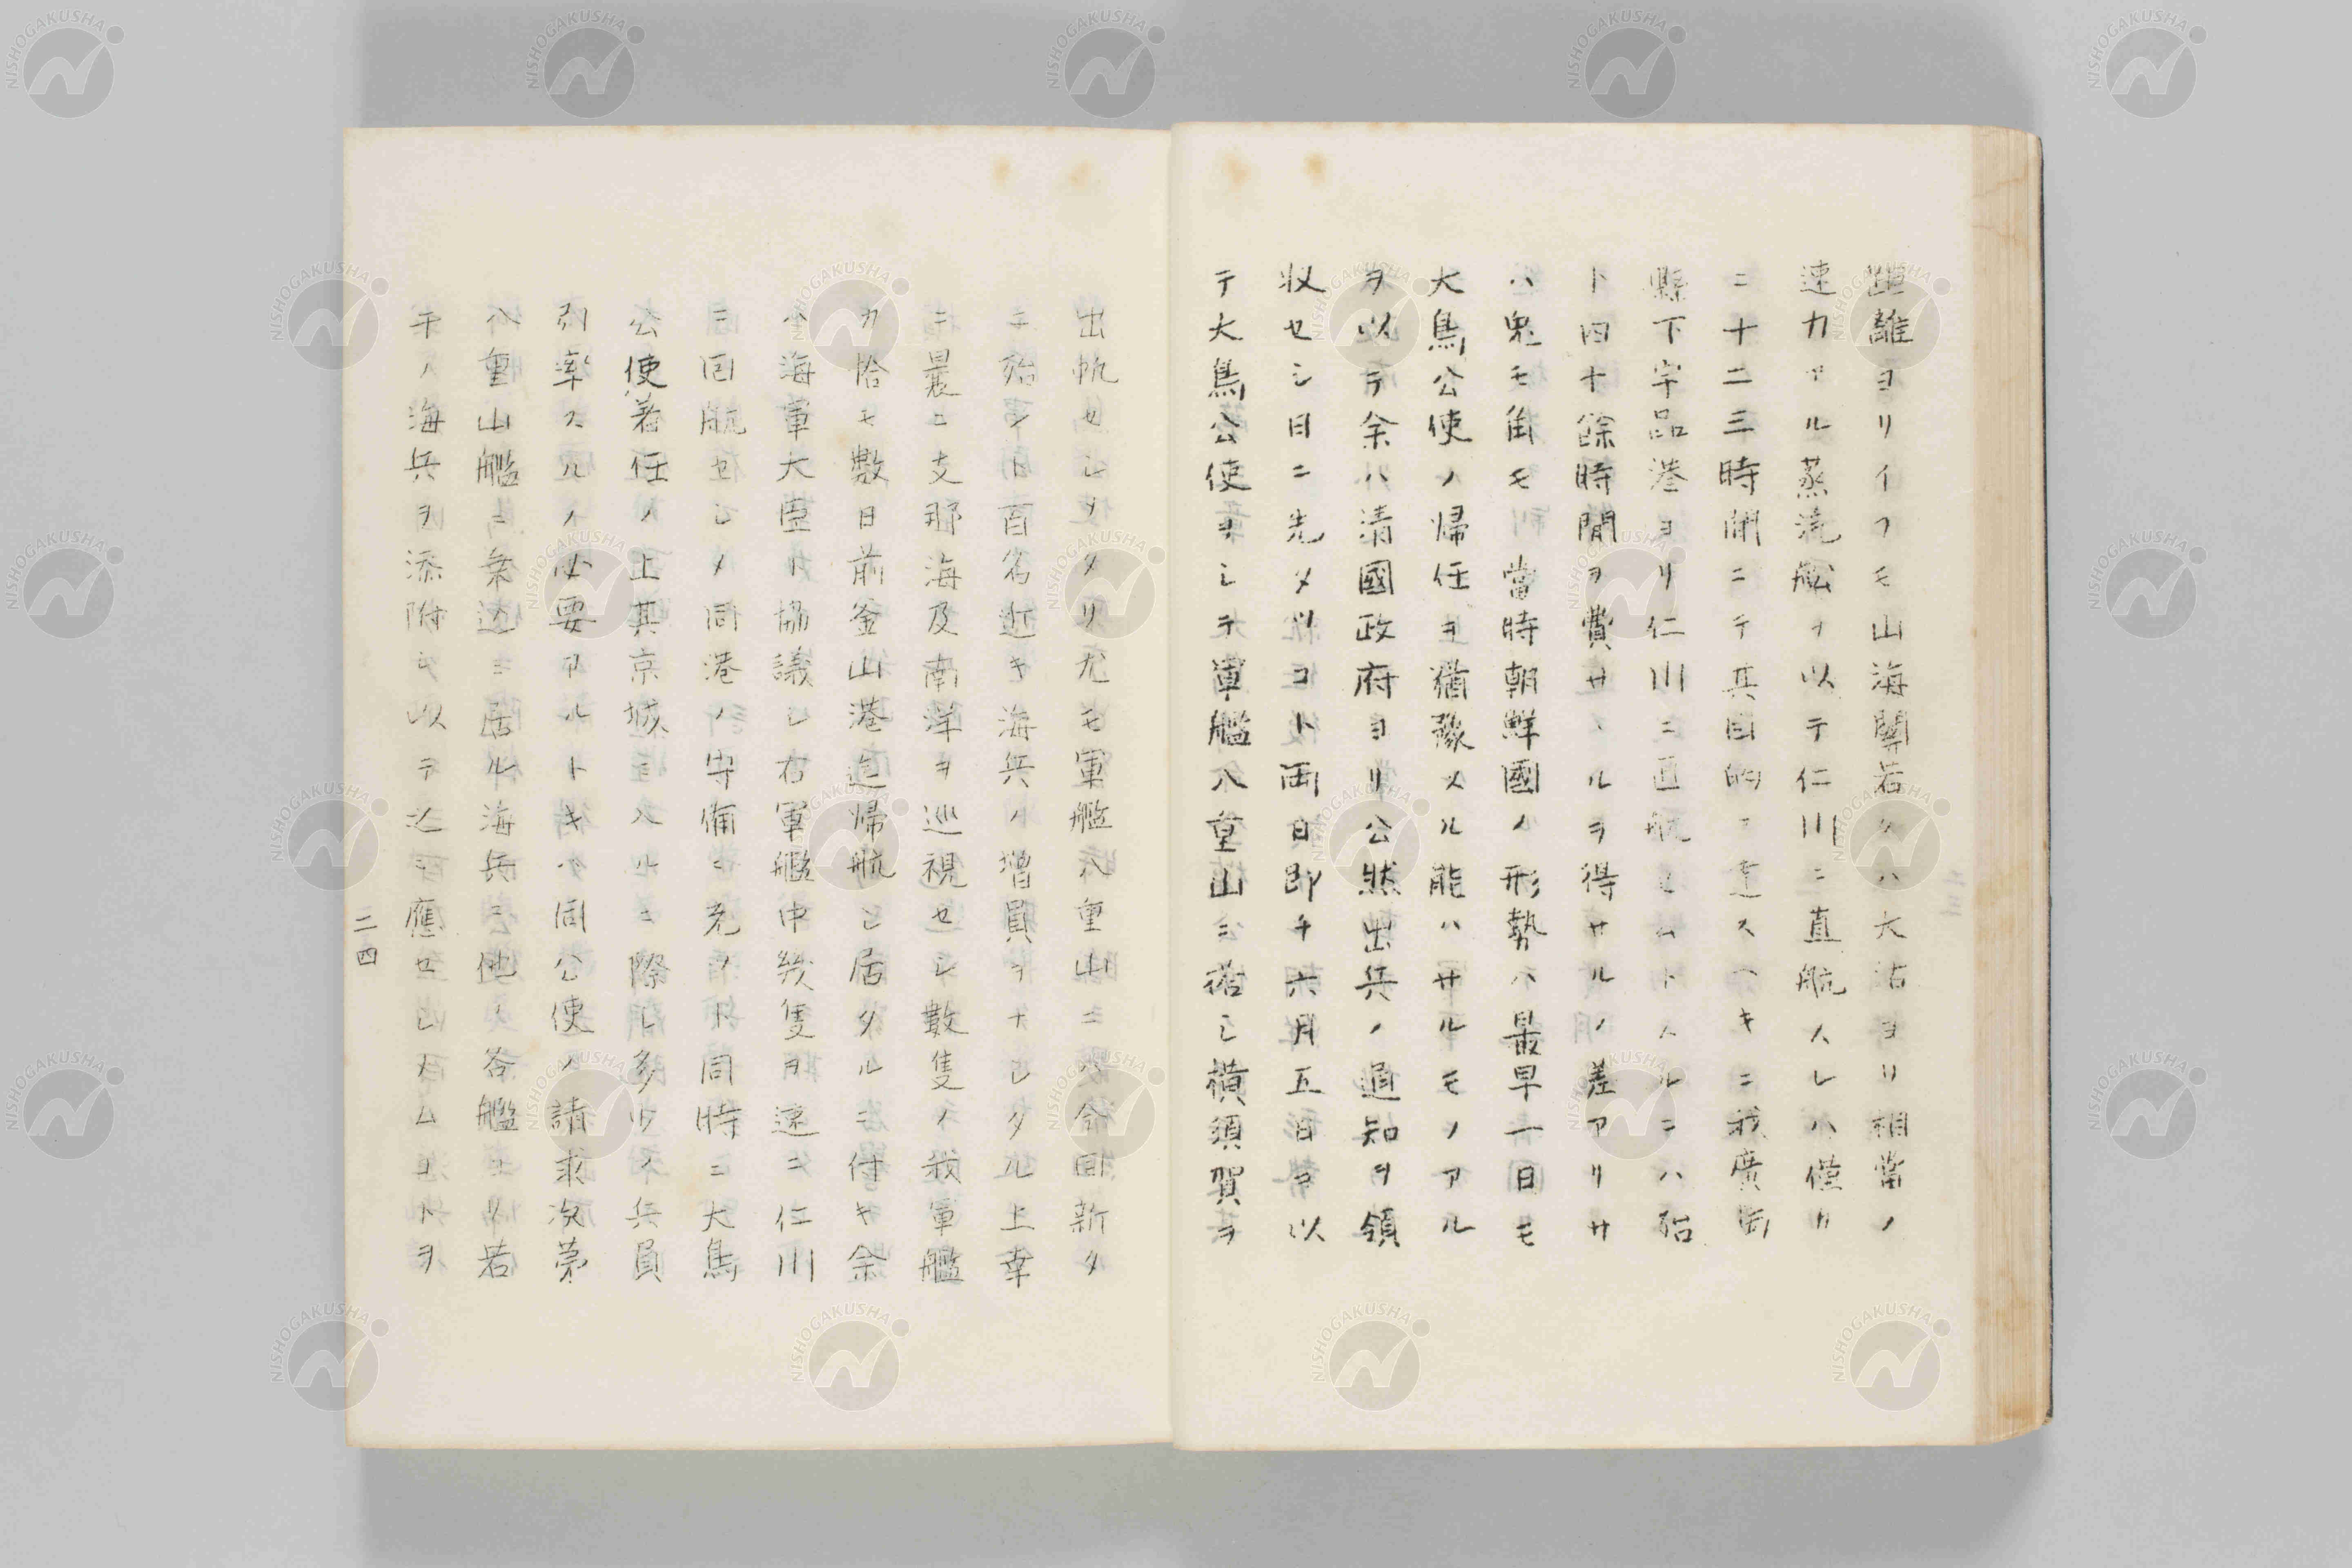 距離ヨリイフモ山海關若クハ大沽ヨリ相當ノ
速力アル蒸汽舩ヲ以テ仁川ニ直航スレハ僅カ
ニ十二三時間ニテ其目的ヲ達スヘキニ我廣島
縣下宇品港ヨリ仁川ニ直航セムトスルニハ殆
ト四十餘時間ヲ費サヽルヲ得サルノ差アリサ
ハ鬼モ角モ當時朝鮮國ノ形勢ハ最早一日モ
大鳥公使ノ帰任ヲ猶豫スル能ハサルモノアル
ヲ以テ余ハ清國政府ヨリ公然出兵ノ通知ヲ領
収セシ日ニ先タツコト両日即チ六月五日ヲ以
テ大鳥公使ヲシテ軍艦八重山ニ搭シ横須賀ヲ
出帆セシメタリ尤モ軍艦八重山ニハ命シ新タ
ニ殆ント百名近キ海兵ノ増員ヲナシタル上幸
ニ曩ニ支那海及南洋ヲ巡視セシ數隻ノ我軍艦
カ恰モ數日前釜山港迄帰航シ居タルニ付キ余
ハ海軍大臣ト協議シ右軍艦中幾隻ヲ速ニ仁川
ニ回航セシメ同港ノ守備ニ充ツルト同時ニ大鳥
公使着任ノ上其京城ニ入ルニ際シ多少ノ兵員
引率スルノ必要アルトキハ同公使ノ請求次第
八重山艦ニ乗込ミ居ル海兵ニ他ノ各艦ヨリ若
干ノ海兵ヲ添附シ以テ之ニ應セシメムコトヲ
二四
NISHOGAKUSHA